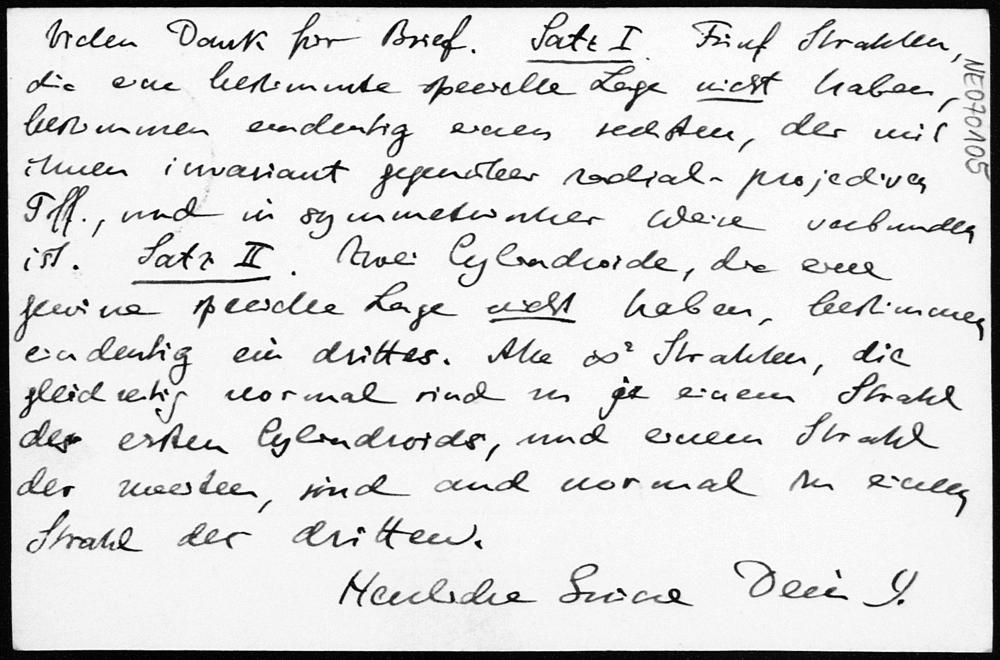 Vielen Dank für Brief. Satz I. Fünf Strahlen,
die eine bestimmte specielle Lage nicht haben,
bestimmen eindeutig einen sechsten, der mit
ihnen invariant gegenüber radial-projectiven
Tff., und in symmetrischer Weise verbunden
ist. Satz II. Zwei Cylindroide, die eine
gewisse specielle Lage nicht haben, bestimmen
eindeutig ein drittes. Alle ∞² Strahlen, die
gleichzeitig normal sind zu je einem Strahl
des ersten Cylindroids, und einem Strahl
des zweiten, sind auch normal zu einem
Strahl des dritten.
Herzliche Grüsse Dein
NE070105